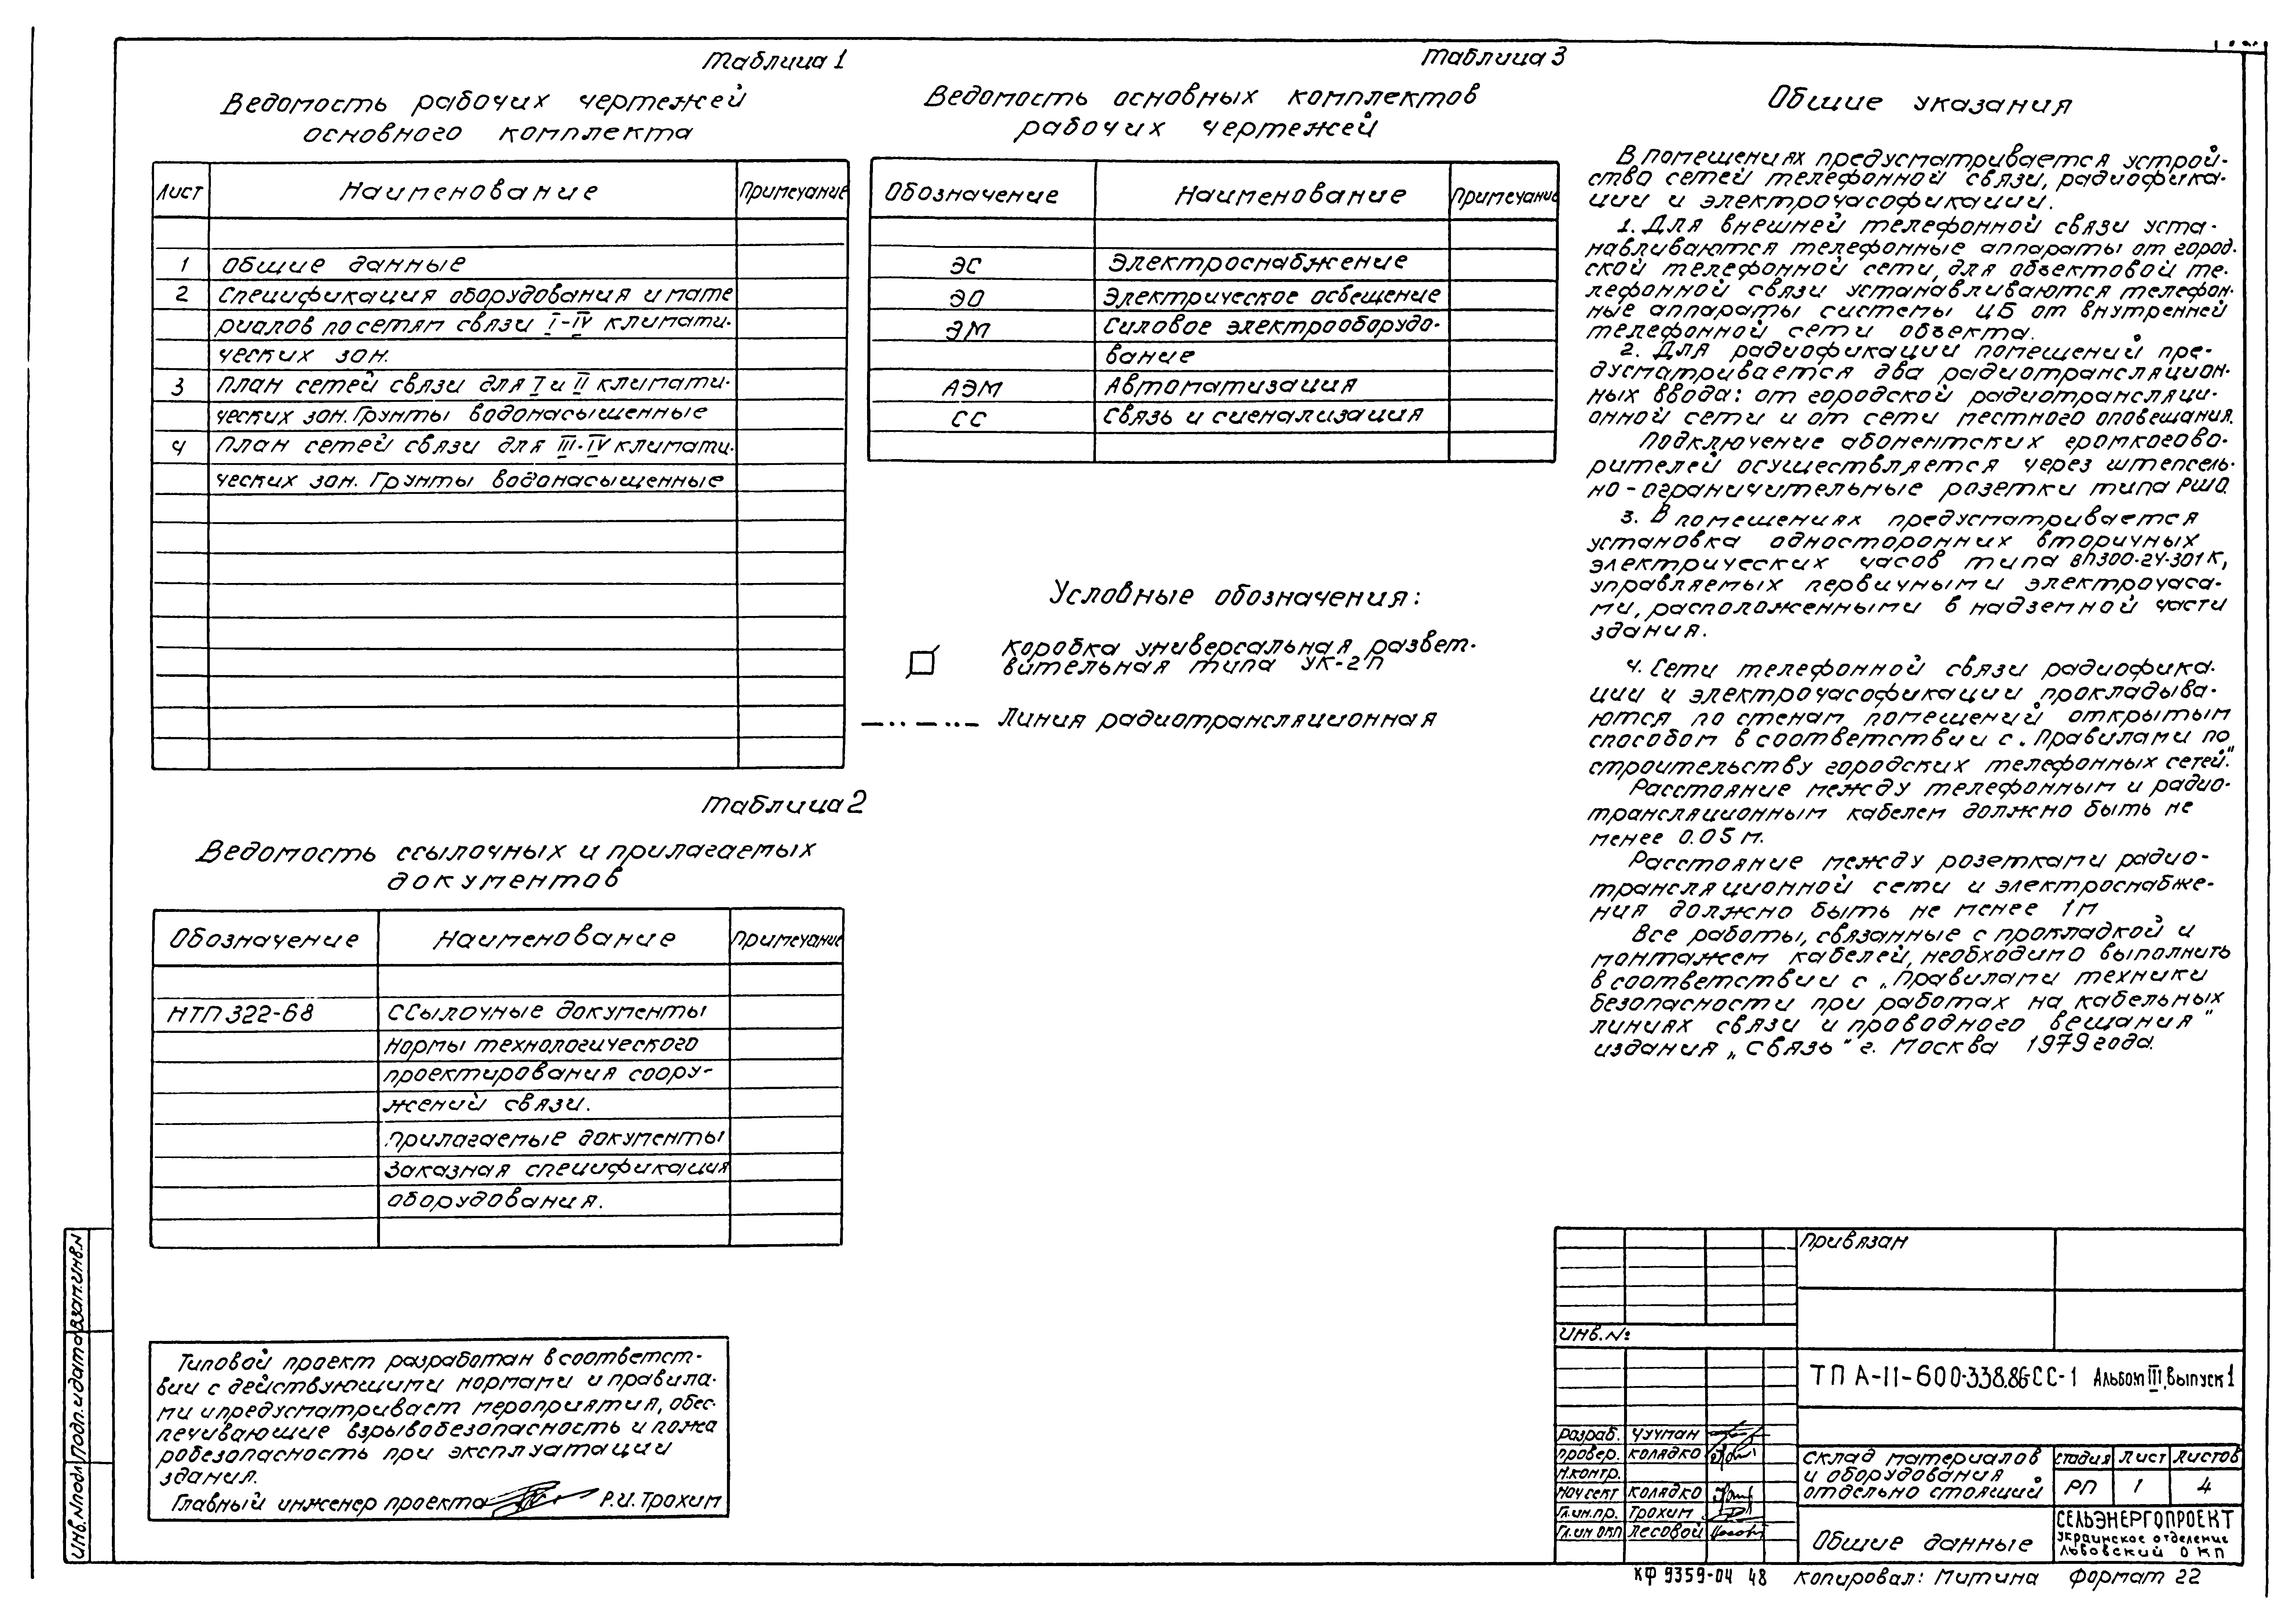 Таблица 1
Ведомость рабочих чертежей
основного комплекта
Лист Наименование Примечание
1 Общие данные
2 Спецификация оборудования и мате
риалов по сетям связи I-IV климати-
ческих зон.
3 План сетей связи для I и II климати-
ческих зон. Грунты водонасыщенные
4 План сетей связи для III-IV климати-
ческих зон. Грунты водонасыщенные
Таблица 2
Ведомость ссылочных и прилагаемых
документов
Обозначение Наименование Примечание
НТП 322-68 Ссылочные документы
Нормы технологического
проектирования соору-
жений связи.
Прилагаемые документы
Заказная спецификация
оборудования.
Типовой проект разработан в соответст-
вии с действующими нормами и правила-
ми и предусматривает мероприятия, обес-
печивающие взрывобезопасность и пожа
робезопасность при эксплуатации
здания.
Главный инженер проекта Р.И. Трохим
Таблица 3
Ведомость основных комплектов
рабочих чертежей
Обозначение Наименование Примечание
ЭС Электроснабжение
ЭО Электрическое освещение
ЭМ Силовое электрооборудо-
вание
АЭМ Автоматизация
СС Связь и сигнализация
Условные обозначения:
Коробка универсальная развет-
вительная типа УК-2П
Линия радиотрансляционная
Общие указания
В помещениях предусматривается устрой-
ство сетей телефонной связи, радиофика-
ции и электрочасофикации.
1. Для внешней телефонной связи уста-
навливаются телефонные аппараты от город-
ской телефонной сети, для объектовой те-
лефонной связи устанавливаются телефон-
ные аппараты системы ЦБ от внутренней
телефонной сети объекта.
2. Для радиофикации помещений пре-
дусматривается два радиотрансляцион-
ных ввода: от городской радиотрансляци-
онной сети и от сети местного оповещания.
Подключение абонентских громкогово-
рителей осуществляется через штепсель-
но-ограничительные розетки типа РШО.
3. В помещениях предусматривается
установка односторонних вторичных
электрических часов типа ВП300-24-301К,
управляемых первичными электрочаса-
ми, расположенными в надземной части
здания.
4. Сети телефонной связи радиофика-
ции и электрочасофикации прокладыва-
ются по стенам помещений открытым
способом в соответствии с „Правилами по
строительству городских телефонных сетей."
Расстояние между телефонным и радио-
трансляционным кабелем должно быть не
менее 0.05 м.
Расстояние между розетками радио-
трансляционной сети и электроснабже-
ния должно быть не менее 1м
Все работы, связанные с прокладкой и
монтажем кабелей, необходимо выполнить
в соответствии с „Правилами техники
безопасности при работах на кабельных
линиях связи и проводного вещания"
издания „Связь" г. Москва 1979 года.
Взам.инв.N
Подп. и дата
Инв.N подл
Привязан
Инв.N:
ТП А-II-600-338.86-СС-1 Альбом III, Выпуск 1
Разраб. Чучман
Провер. Колядко
Н.контр.
Нач сект Колядко
Гл.ин.пр. Трохим
Гл.ин ОКП Лесовой
Склад материалов
и оборудования
отдельно стоящий
Стадия Лист Листов
РП 1 4
Общие данные
СЕЛЬЭНЕРГОПРОЕКТ
Украинское отделение
Львовский ОКП
КФ 9359-04 48 Копировал: Митина Формат 22